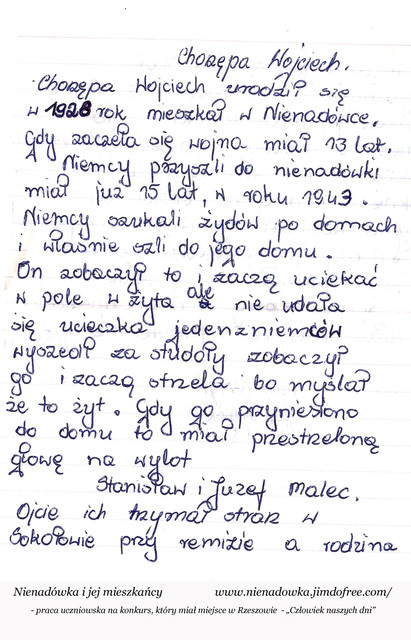 Chorzępa Wojciech.
Chorzępa Wojciech urodził się
w 1928 rok mieszkał w Nienadówce.
Gdy zaczeła się wojna miał 13 lat.
A Niemcy przyszli do nienadówki
miał już 15 lat, w roku 1943.
Niemcy szukali żydów po domach
i właśnie szli do jego domu.
On zobaczył to i zaczą uciekać
w pole w żyta ale nie udała
się ucieczka jeden z niemców
wyszedł za studoły zobaczył
go i zaczą strzela bo myslał
że to żyt. Gdy go przyniesiono
do domu to miał przestrzeloną
głowę na wylot
Stanisław i Juzef Malec.
Ojcie ich trzymał straż w
Sokołowie przy remizie a rodzina
Nienadówka i jej mieszkańcy www.nienadowka.jimdofree.com/
- praca uczniowska na konkurs, który miał miejsce w Rzeszowie - „Człowiek naszych dni”